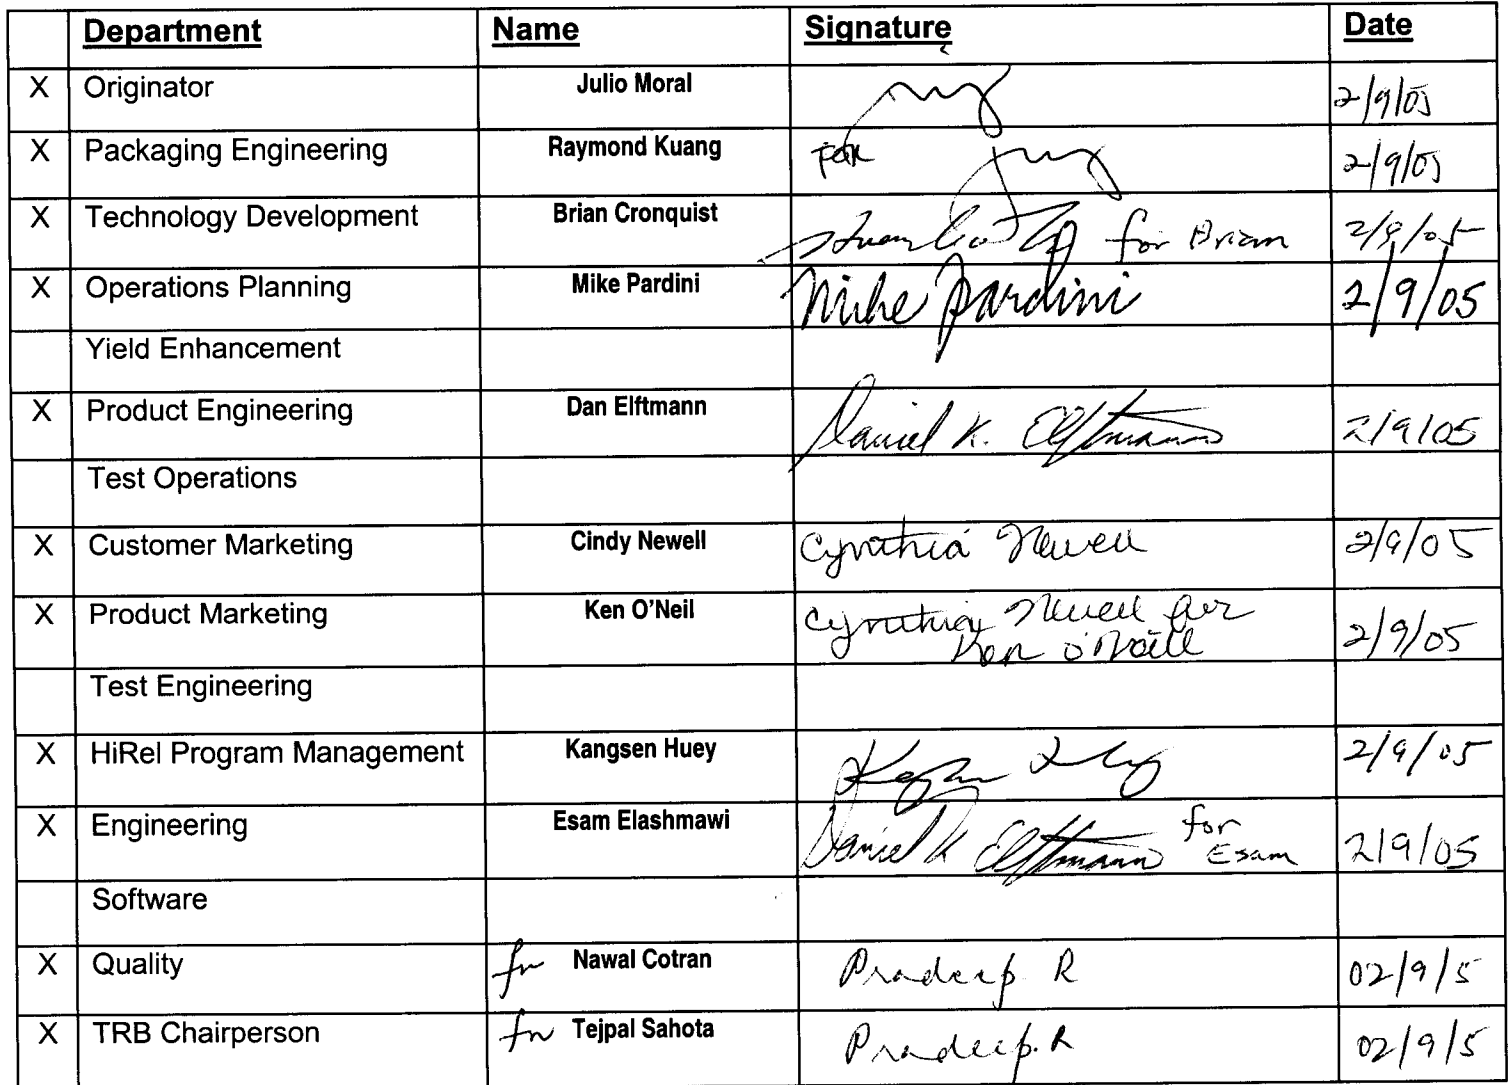 Department Name Signature Date
X Originator Julio Moral 2/9/05
X Packaging Engineering Raymond Kuang For 2/9/05
X Technology Development Brian Cronquist for Brian 2/9/05
X Operations Planning Mike Pardini Mike Pardini 2/9/05
Yield Enhancement
X Product Engineering Dan Elftmann Daniel K. Elftmann 2/9/05
Test Operations
X Customer Marketing Cindy Newell Cynthia Newell 2/9/05
X Product Marketing Ken O'Neil Cynthia Newell for
Ken O'Neill 2/9/05
Test Engineering
X HiRel Program Management Kangsen Huey 2/9/05
X Engineering Esam Elashmawi Daniel K Elftmann for
Esam 2/9/05
Software
X Quality for Nawal Cotran Pradeep R 02/9/5
X TRB Chairperson for Tejpal Sahota Pradeep. R 02/9/5